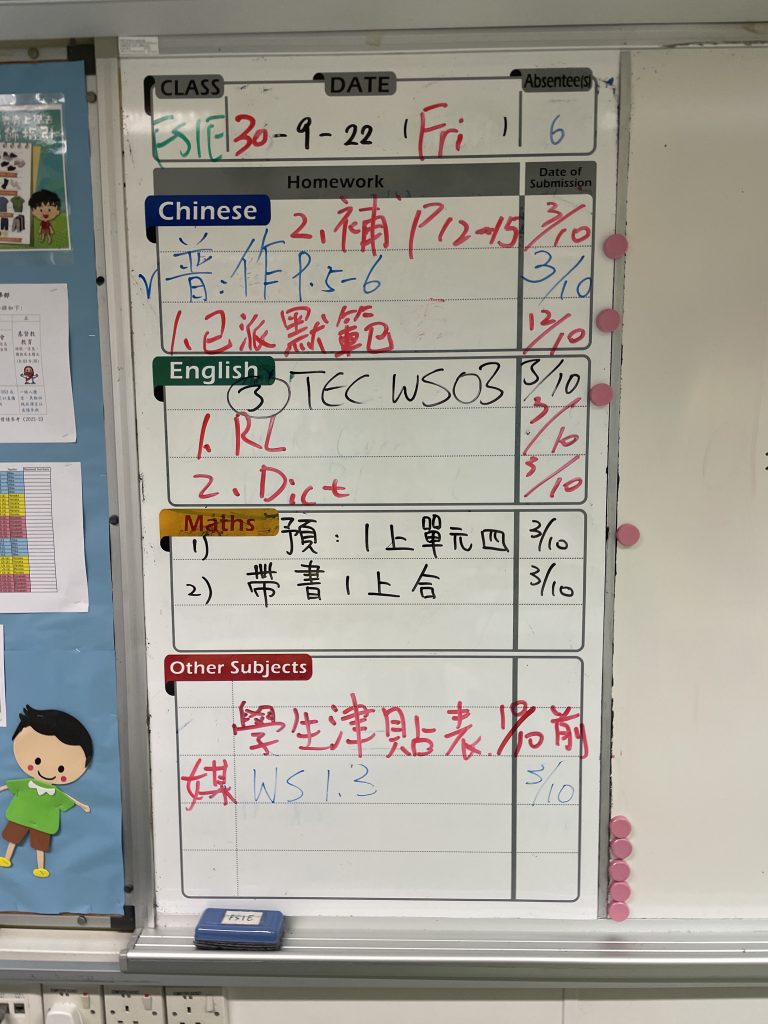 CLASS DATE Absentee(s)
FS1E 30-9-22 (Fri) 6
Homework Date of Submission
Chinese 2. 補 P12-15 3/10
✓普:作 P.5-6 3/10
1. 已派默範 12/10
English ③ TEC WS03 3/10
1. RL 3/10
2. Dict 3/10
Maths
1) 預: 1上單元四 3/10
2) 帶書1上合 3/10
Other Subjects
學生津貼表 19/10前
媒 WS 1.3 3/10
FS1E